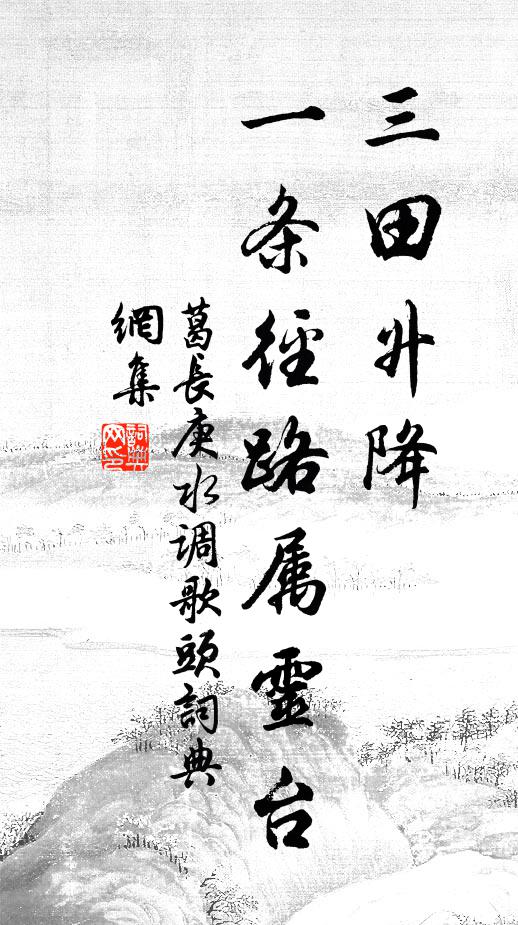 三田升降
一条径路属靈台
葛長庚水调歌頭詞典
網集